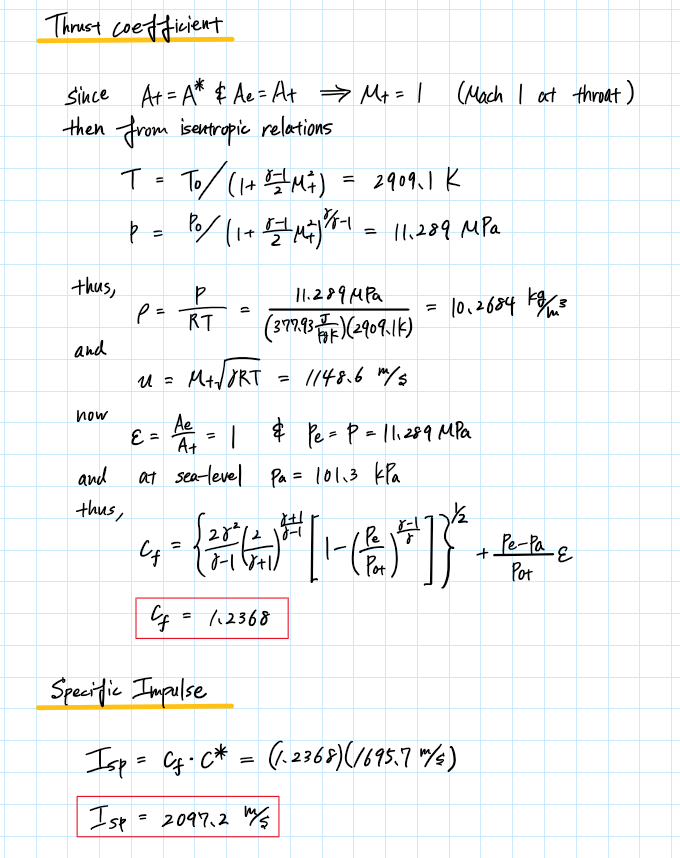 Thrust coefficient
Since At = A* & Ae = At ⟹ Mt = 1 (Mach 1 at throat)
then from isentropic relations
T = T₀/(1+ (γ-1)/2 Mt²) = 2909.1 K
p = P₀/(1+ (γ-1)/2 Mt²)^(γ/γ-1) = 11.289 MPa
thus,
ρ = P/RT = 11.289 MPa/((377.93 J/kgK)(2909.1K)) = 10.2684 kg/m³
and
u = Mt√γRT = 1148.6 m/s
now
ε = Ae/At = 1 & Pe = P = 11.289 MPa
and at sea-level Pa = 101.3 kPa
thus,
Cf = {2γ²/(γ-1) (2/(γ+1))^((γ+1)/(γ-1)) [1-(Pe/Pot)^((γ-1)/γ)]}^(1/2) + (Pe-Pa)/Pot ε
Cf = 1.2368
Specific Impulse
Isp = Cf · C* = (1.2368)(1695.7 m/s)
Isp = 2097.2 m/s